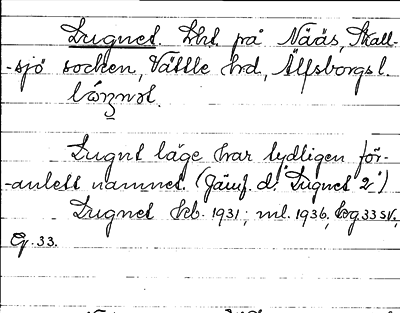 Lugnet. Lht. på Nääs, Skall-
-sjö socken, Vättle hrd, Älfsborgs l.
Lugnt läge har tydligen för-
-anlett namnet. (Jämf. d:o Lugnet 2.)
Lugnet hb. 1931; ml. 1936, Eg 33 SV,
Eg. 33.